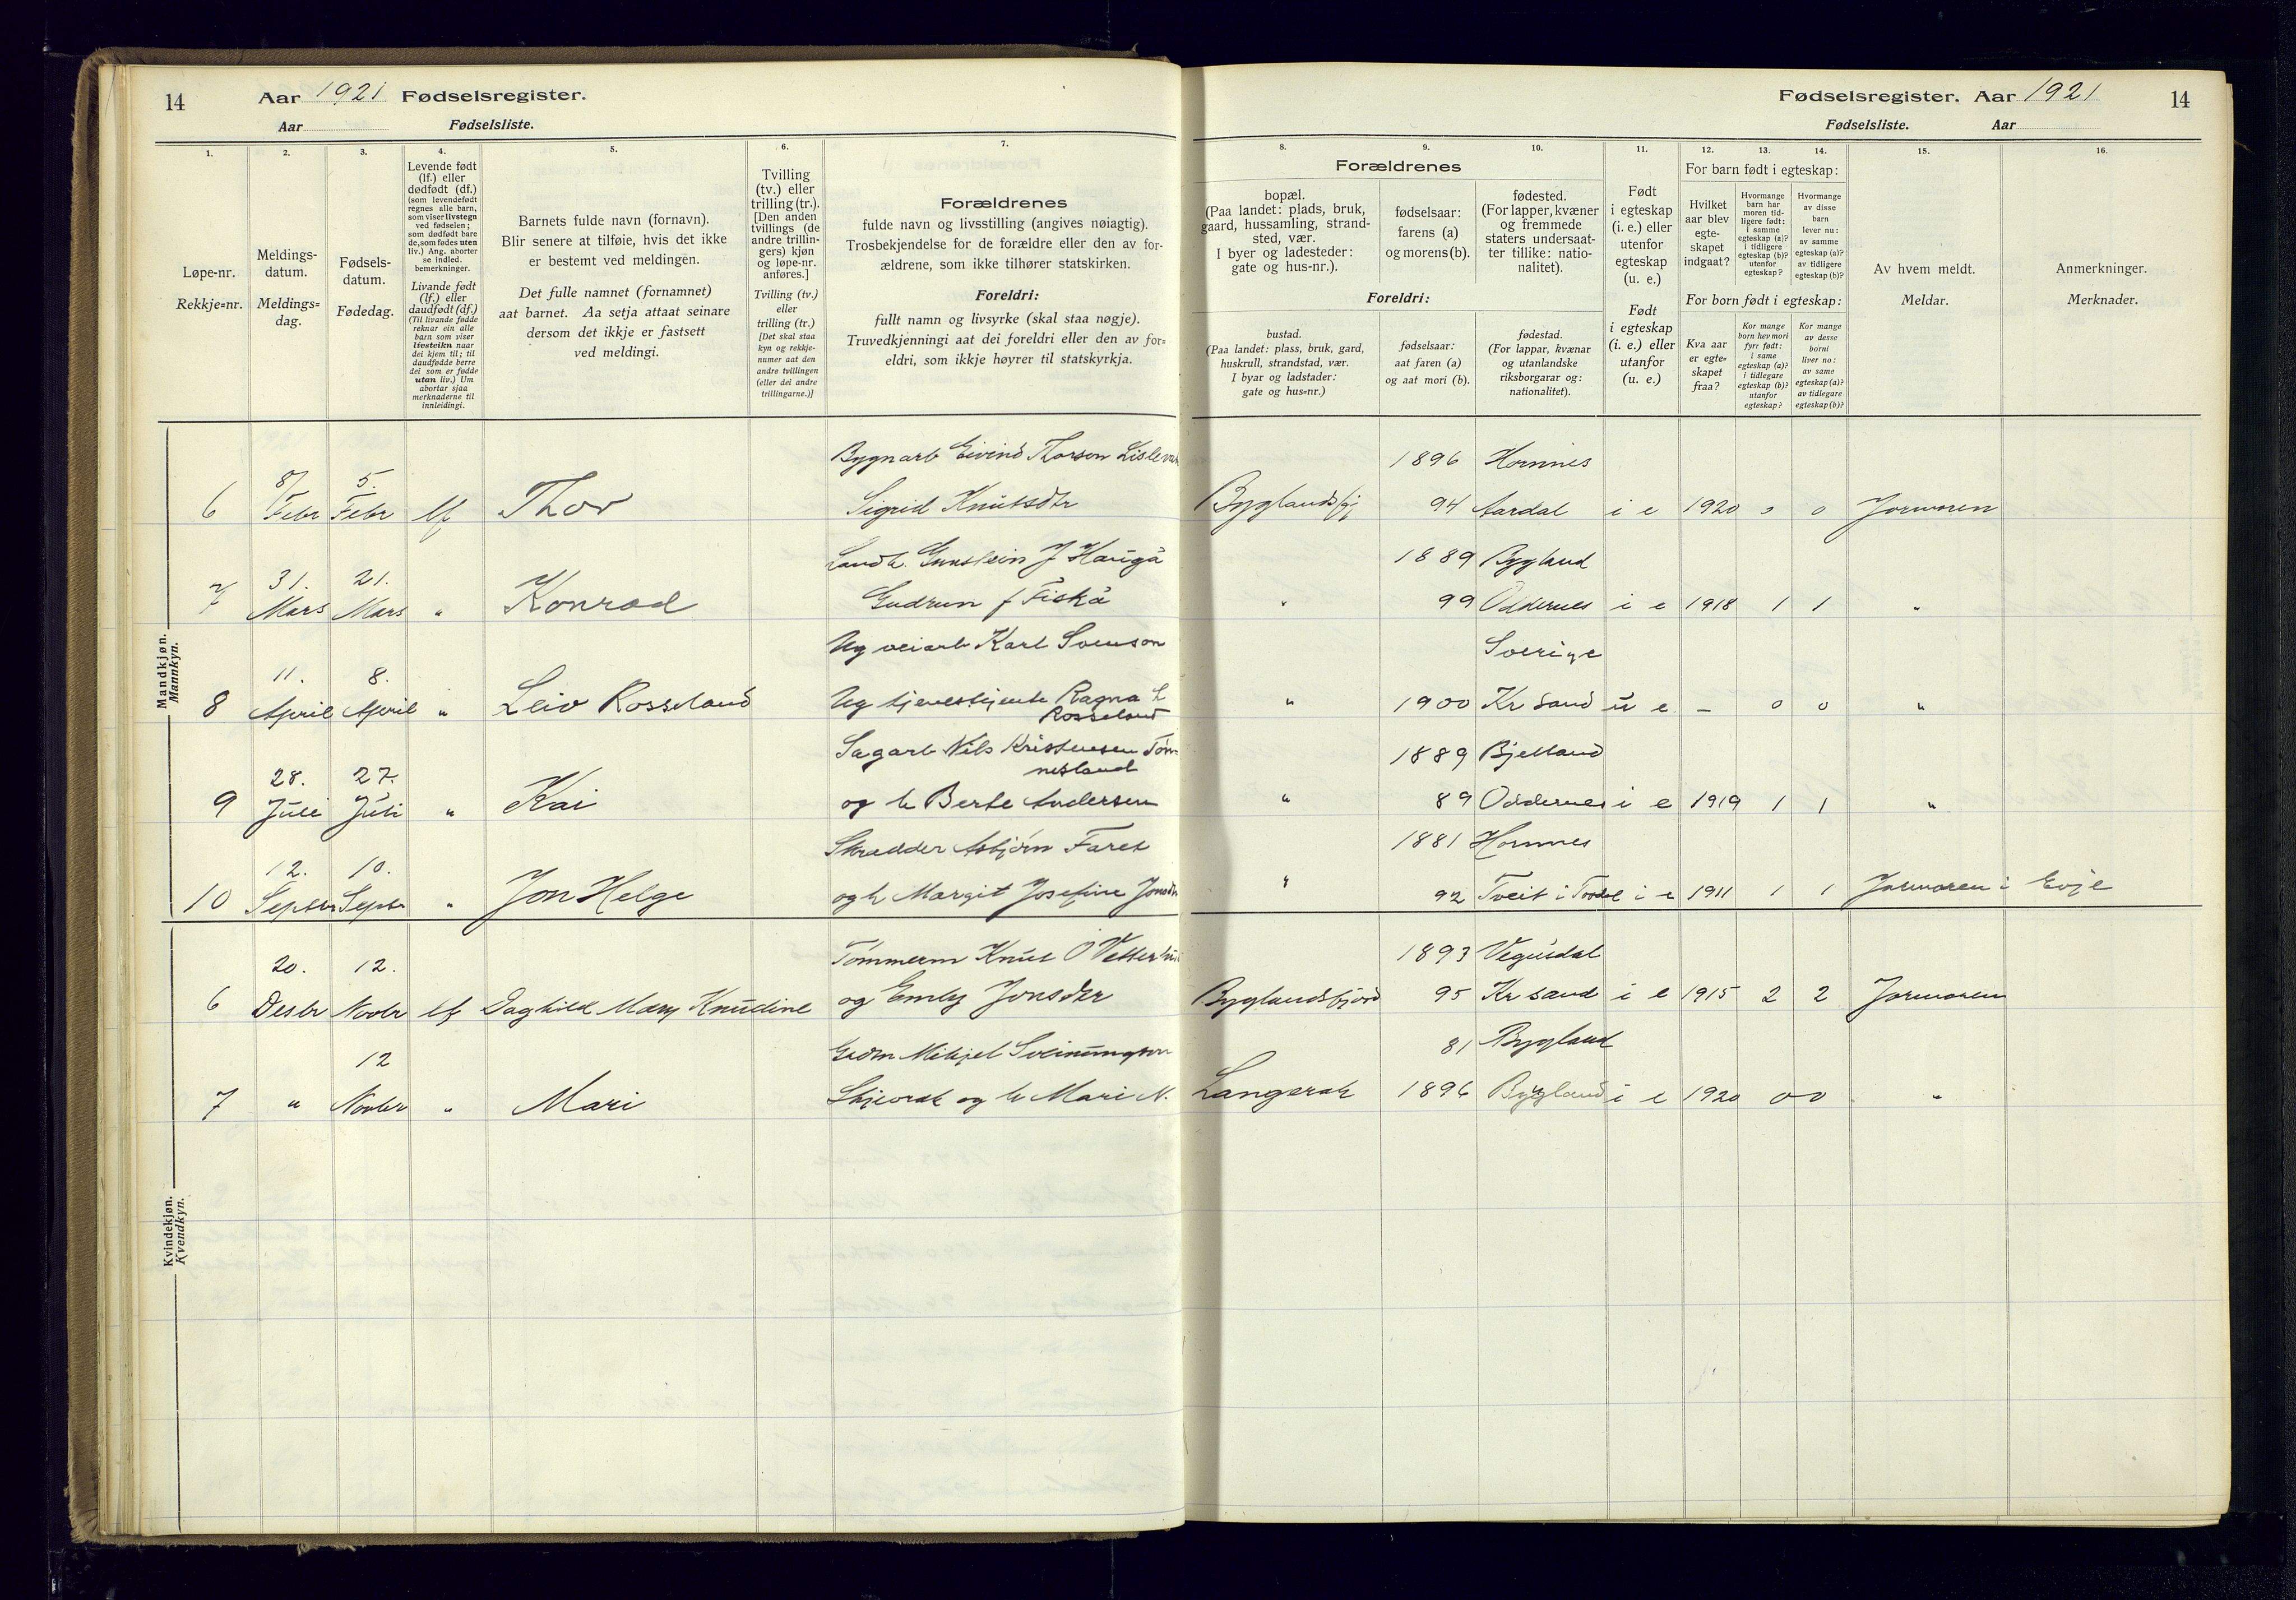 14 Aar 1921 Fødselsregister.
Aar Fødselsliste.
Fødselsregister. Aar 1921 14
Fødselsliste. Aar
1. 2. 3. 4. 5. 6. 7. 8. 9. 10. 11. 12. 13. 14. 15. 16.
Løpe-nr.
Rekkje=nr.
Meldings-
datum.
Meldings=
dag.
Fødsels-
datum.
Fødedag.
Levende født
(lf.) eller
dødfødt (df.)
(som levendefødt
regnes alle barn,
som viser livstegn
ved fødselen;
som dødfødt bare
de, som fødes uten
liv.) Ang. aborter
se indled.
bemerkninger.
Livande født
(lf.) eller
daudfødt (df.)
(Til livande fødde
reknar ein alle
barn som viser
livsteikn naar
dei kjem til; til
daudfødde berre
dei som er fødde
utan liv.) Um
abortar sjaa
merknaderne til
innleidingi.
Barnets fulde navn (fornavn).
Blir senere at tilføie, hvis det ikke
er bestemt ved meldingen.
Det fulle namnet (fornamnet)
aat barnet. Aa setja attaat seinare
dersom det ikkje er fastsett
ved meldingi.
Tvilling
(tv.) eller
trilling (tr.).
[Den anden
tvillings (de
andre trillin-
gers) kjøn
og løpe-nr.
anføres.]
Tvilling (tv.)
eller
trilling (tr.)
[Det skal staa
kyn og rekkje-
numer aat den
andre tvillingen
(eller dei andre
trillingarne.)]
Forældrenes
fulde navn og livsstilling (angives nøiagtig).
Trosbekjendelse for de forældre eller den av for-
ældrene, som ikke tilhører statskirken.
Foreldri:
fullt namn og livsyrke (skal staa nøgje).
Truvedkjenningi aat dei foreldri eller den av for=
eldri, som ikkje høyrer til statskyrkja.
Forældrenes
bopæl.
(Paa landet: plads, bruk,
gaard, hussamling, strand-
sted, vær.
I byer og ladesteder:
gate og hus-nr.).
fødselsaar:
farens (a)
og morens (b).
fødested.
(For lapper, kvæner
og fremmede
staters undersaat-
ter tillike: natio-
nalitet).
Foreldri:
bustad.
(Paa landet: plass, bruk, gard,
huskrull, strandstad, vær.
I byar og ladstader:
gate og hus=nr.)
fødselsaar:
aat faren (a)
og aat mori (b).
fødestad.
(For lappar, kvænar
og utanlandske
riksborgarar og:
nationalitet).
Født
i egteskap
(i. e.) eller
utenfor
egteskap
(u. e.)
Født
i egteskap
(i. e.) eller
utanfor
(u. e.)
For barn født i egteskap:
Hvilket
aar blev
egte-
skapet
indgaat?
Hvormange
barn har
moren tid-
ligere født:
i samme
egteskap (a)?
i tidligere
egteskap (b)?
utenfor
egteskap?
Hvormange
av disse
barn
lever nu:
av samme
egteskap (a)?
av tidligere
egteskap (b)?
For born født i egteskap:
Kva aar
er egte=
skapet
fraa?
Kor mange
born hev mori
fyrr født:
i same
egteskap (a)?
i tidlegare
egteskap (b)?
utanfor
egteskap?
Kor mange
av desse
borni
liver no:
av same
egteskap (a)?
av tidlegare
egteskap (b)?
Av hvem meldt.
Meldar.
Anmerkninger.
Merknader.
Mandkjøn.
Mannkyn.
Bygnarb Eivind Thorson 1896 Hornnes
8/ 5.
6 Febr Febr lf Thor Sigrid Knutsdtr Byglandsfj 94 Aardal i e 1920 0 0 Jormoren
Landh. Gunstein J Haugå 1889 Bygland
31. 21.
7 Mars Mars " Konrad Gudrun f Fiskå " 99 Oddernes i e 1918 1 1 "
Ug veiarb Karl Svenson Sverige
11. 8.
8 April April " Leiv Rosseland Ug tjenestjente Ragna L " 1900 Kr sand u e – 0 0 "
Rosseland
Sagarb Nils Kristensen Tøn 1889 Bjelland
nesland
28. 27.
9 Juli Juli " Kai og h Berte Andersen " 89 Oddernes i e 1919 1 1 "
Skrædder Asbjørn Faret 1881 Hornnes
12. 10.
10 Septbr Septbr " Jon Helge og h Margit Josefine Jonsdtr " 92 Tveit i Tovdal i e 1911 1 1 Jormoren i Evje
Kvindekjøn.
Kvendkyn.
Tømmerm Knut O 1893 Vegusdal
20. 12.
6 Desbr Novbr lf Daghild Mary Knudine og Emly Jonsdtr Byglandsfjord 95 Kr sand i e 1915 2 2 Jormoren
Grdm Mikjel Sveinungson 81 Bygland
12
7 " Novbr " Mari Skjevrak og h Mari N. Langerak 1896 Bygland i e 1920 0 0 "